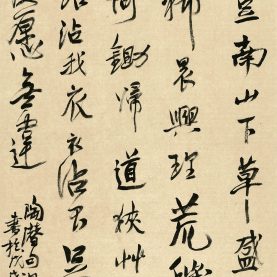 豆南山下草盛
稀晨興理荒穢
荷鋤歸道狹艸
露沾我衣衣沾不足
使願無違
陶潛句
書於戊戌